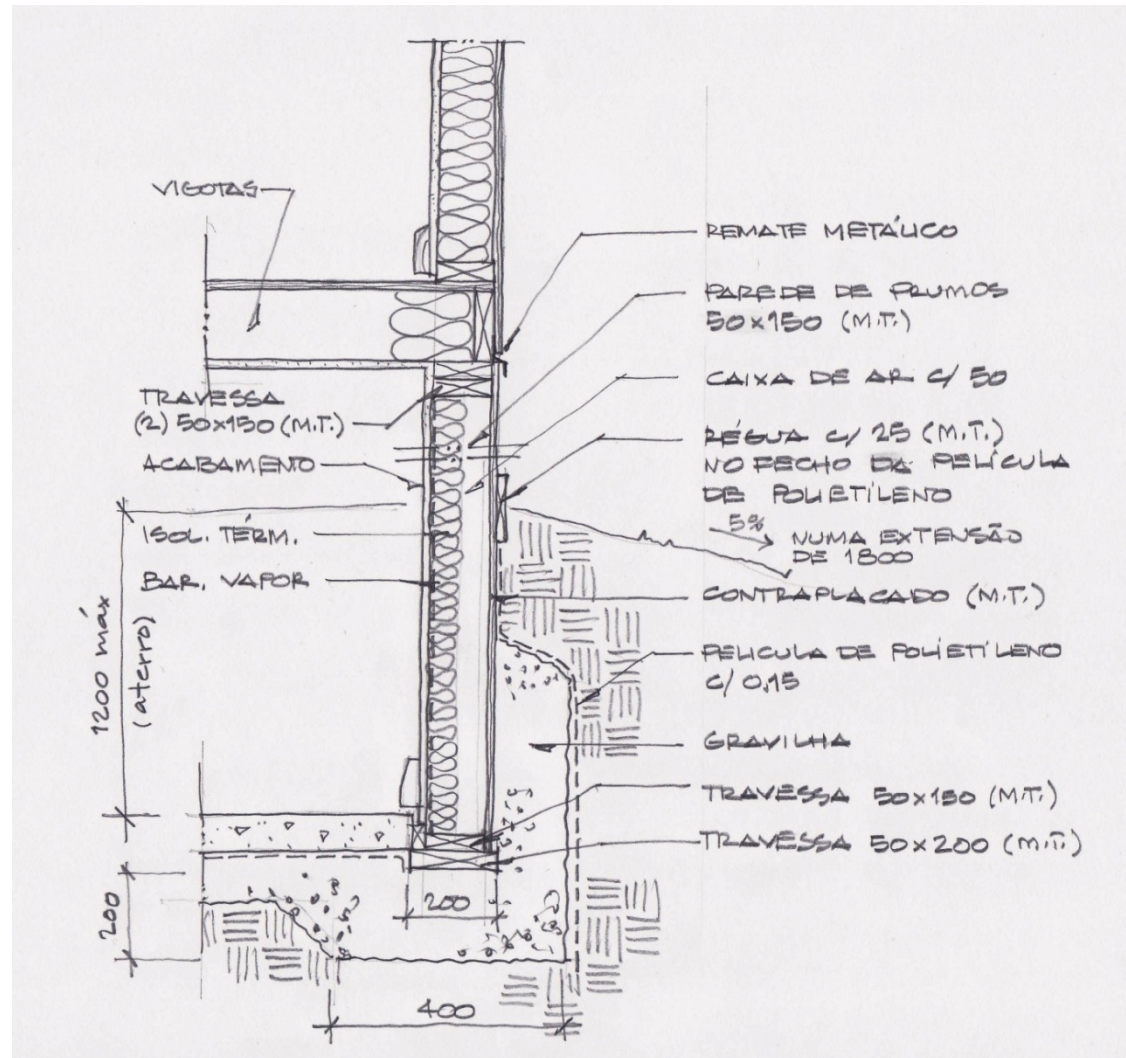 VIGOTAS
TRAVESSA
(2) 50x150 (M.T.)
ACABAMENTO
ISOL. TÉRM.
BAR. VAPOR
1200 máx
(aterro)
200
200
400
REMATE METÁLICO
PAREDE DE PRUMOS
50x150 (M.T.)
CAIXA DE AR C/ 50
RÉGUA C/ 25 (M.T.)
NO FECHO DA PELÍCULA
DE POLIETÍLENO
5%
NUMA EXTENSÃO
DE 1800
CONTRAPLACADO (M.T.)
PELICULA DE POLIETÍLENO
C/ 0,15
GRAVILHA
TRAVESSA 50x150 (M.T.)
TRAVESSA 50x200 (M.T.)